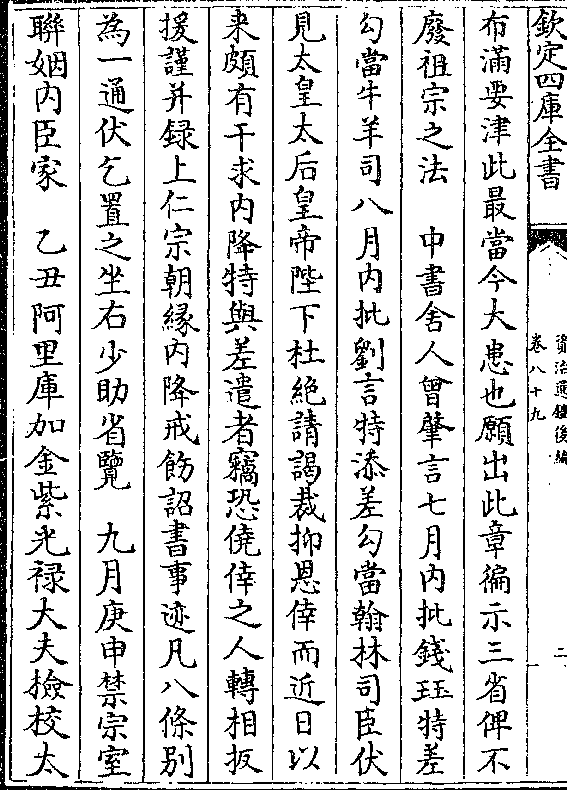 欽定四庫全書
資治通鑑後編
卷八十九
二
布滿要津此最當今大患也願出此章徧示三省俾不
廢祖宗之法　中書舍人曾肇言七月内批錢珏特差
勾當牛羊司八月内批劉言特添差勾當翰林司臣伏
見太皇太后皇帝陛下杜絶請謁裁抑恩倖而近日以
来頗有干求内降特與差遣者竊恐僥倖之人轉相扳
援謹并録上仁宗朝縁内降戒飭詔書事迹凡八條别
為一通伏乞置之坐右少助省覽　九月庚申禁宗室
聯姻内臣家　乙丑阿里庫加金紫光禄大夫撿校太